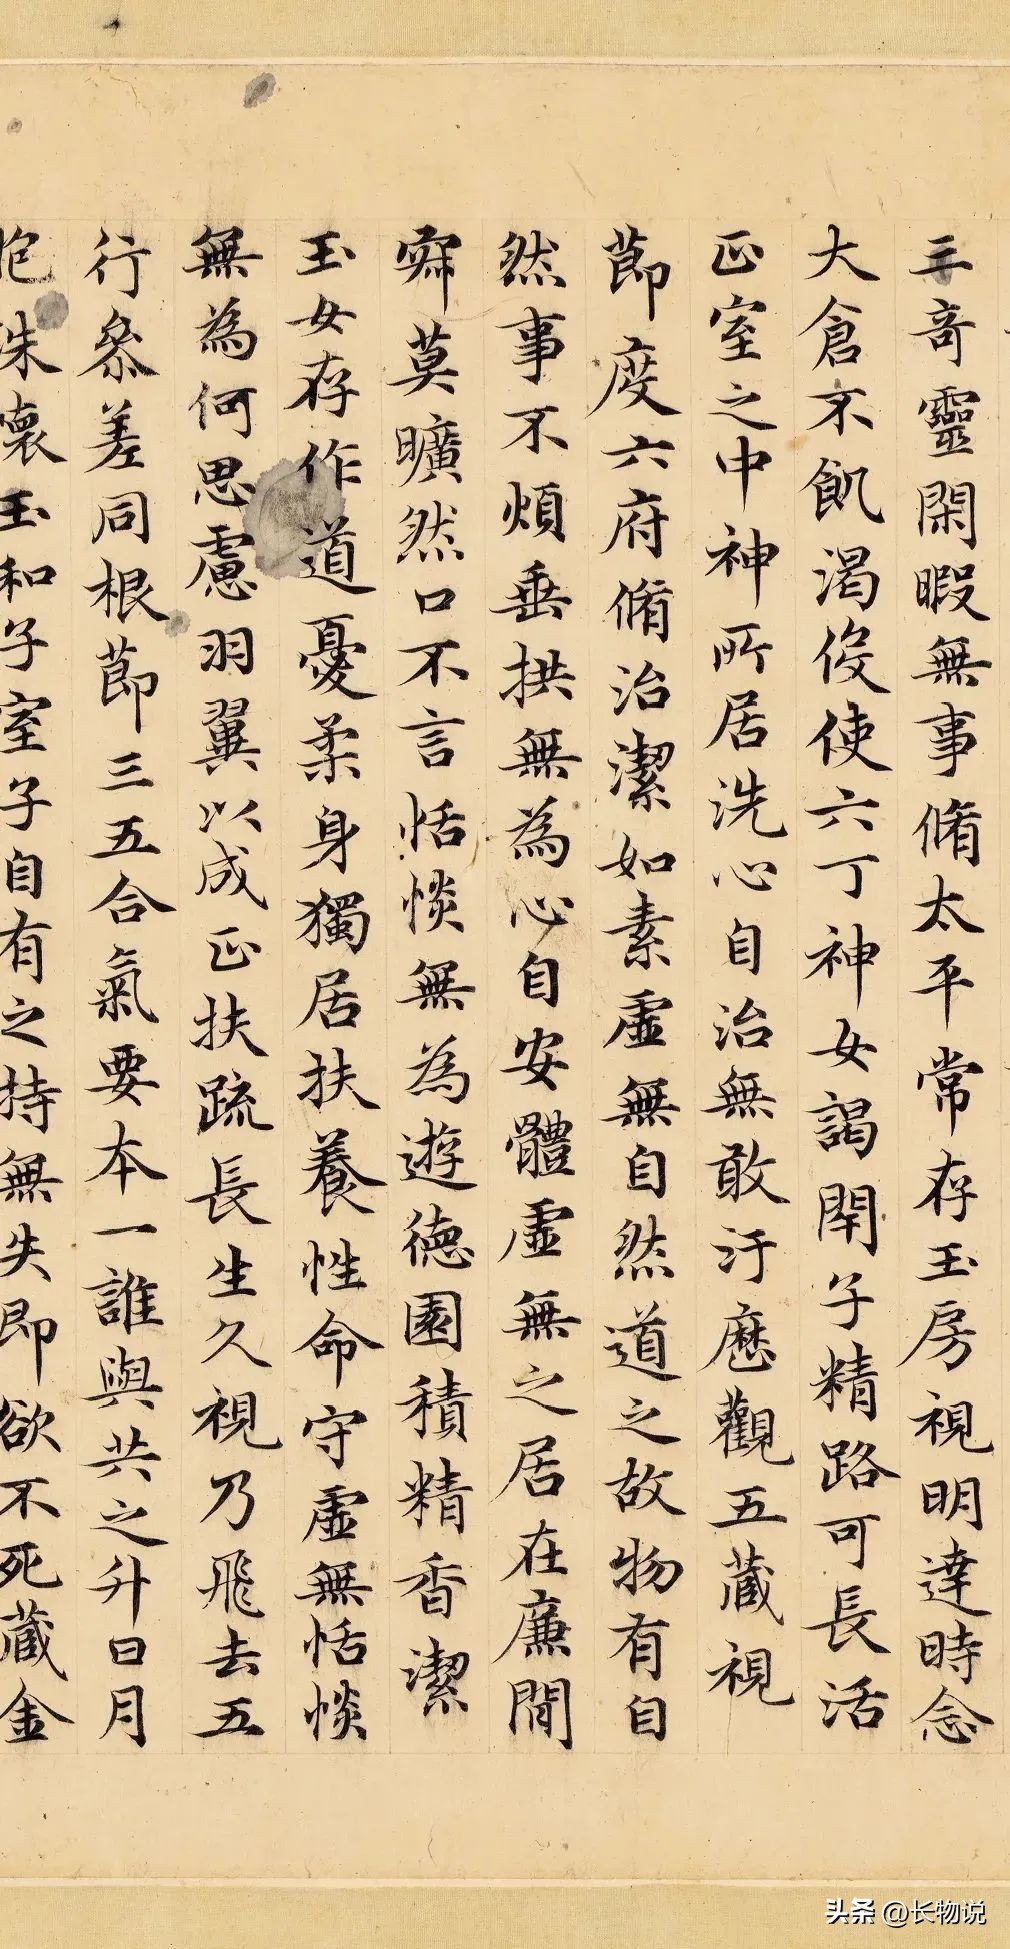 三奇靈閑暇無事脩太平常存玉房視明達時念
大倉不飢渴伇使六丁神女謁閇子精路可長活
正室之中神所居洗心自治無敢汙歷觀五藏視
節度六府脩治潔如素虛無自然道之故物有自
然事不煩垂拱無為心自安體虛無之居在廉間
㝛莫曠然口不言恬惔無為遊德園積精香潔
玉女存作道憂柔身獨居扶養性命守虛無恬惔
無為何思慮羽翼以成正扶疏長生久視乃飛去五
行叅差同根節三五合氣要本一誰與共之升日月
抱珠懷玉和子室子自有之持無失即欲不死藏金
头条 @长物说